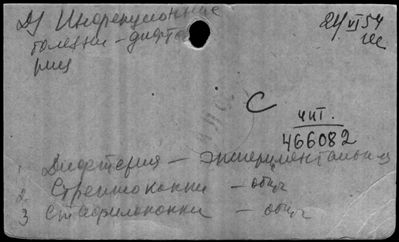 Д) Инфекционные
болезни - дифте
рия
24/VI 54
С
чит.
466082
1. Дифтерия - экспериментальная
2. Стрептококки - общ.
3 Стафилококки - общ.